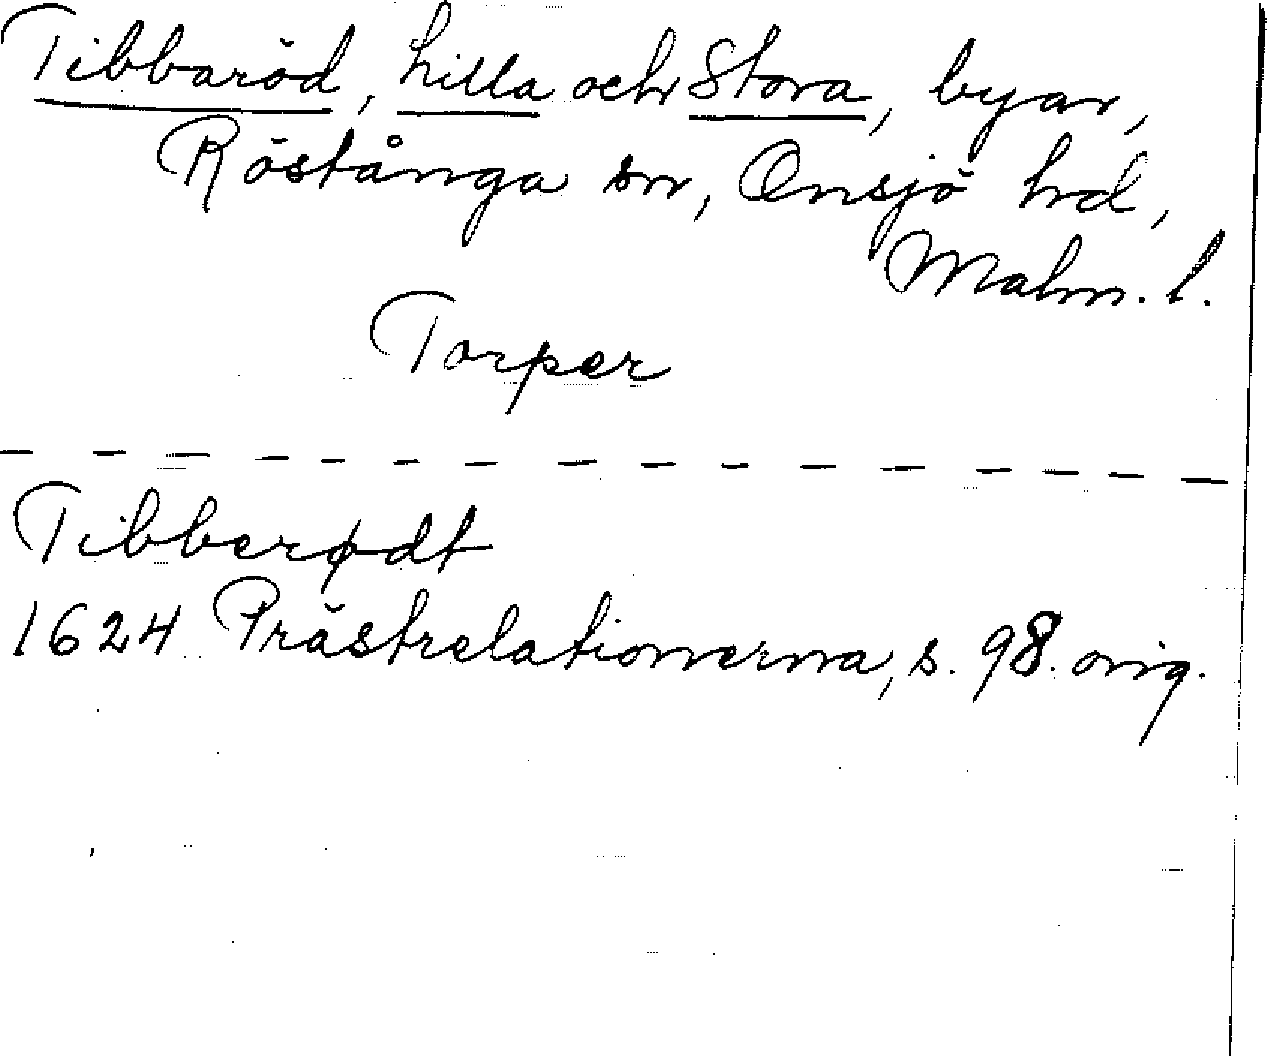 Tibbaröd, Lilla och Stora, byar,
Röstånga sn, Onsjö hd,
Malm. l.
Torper
Tibberødt
1624 Prästrelationerna, s. 98. orig.